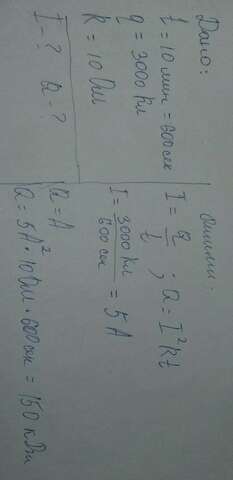 Дано:
t = 10 мин = 600 сек
q = 3000 Кл
R = 10 Ом
I - ? Q - ?
I = q/t ; Q = I²Rt
I = 3000 Кл / 600 сек = 5 А
Q = A
Q = 5А² · 10 Ом · 600 сек = 150 кДж